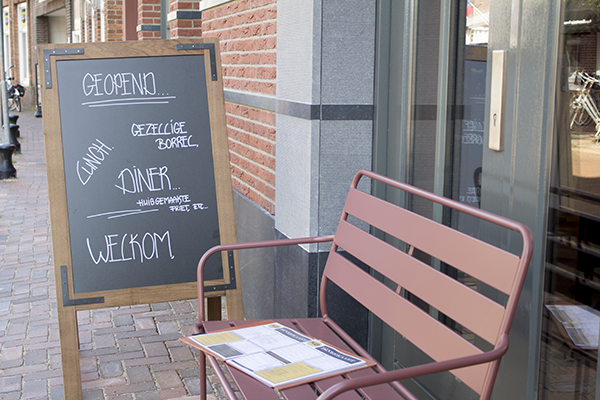 GEOPEND...
GEZELLIGE
BORREL,
LUNCH.
DINER...
HUISGEMAAKTE
FRIET, ETC...
WELKOM